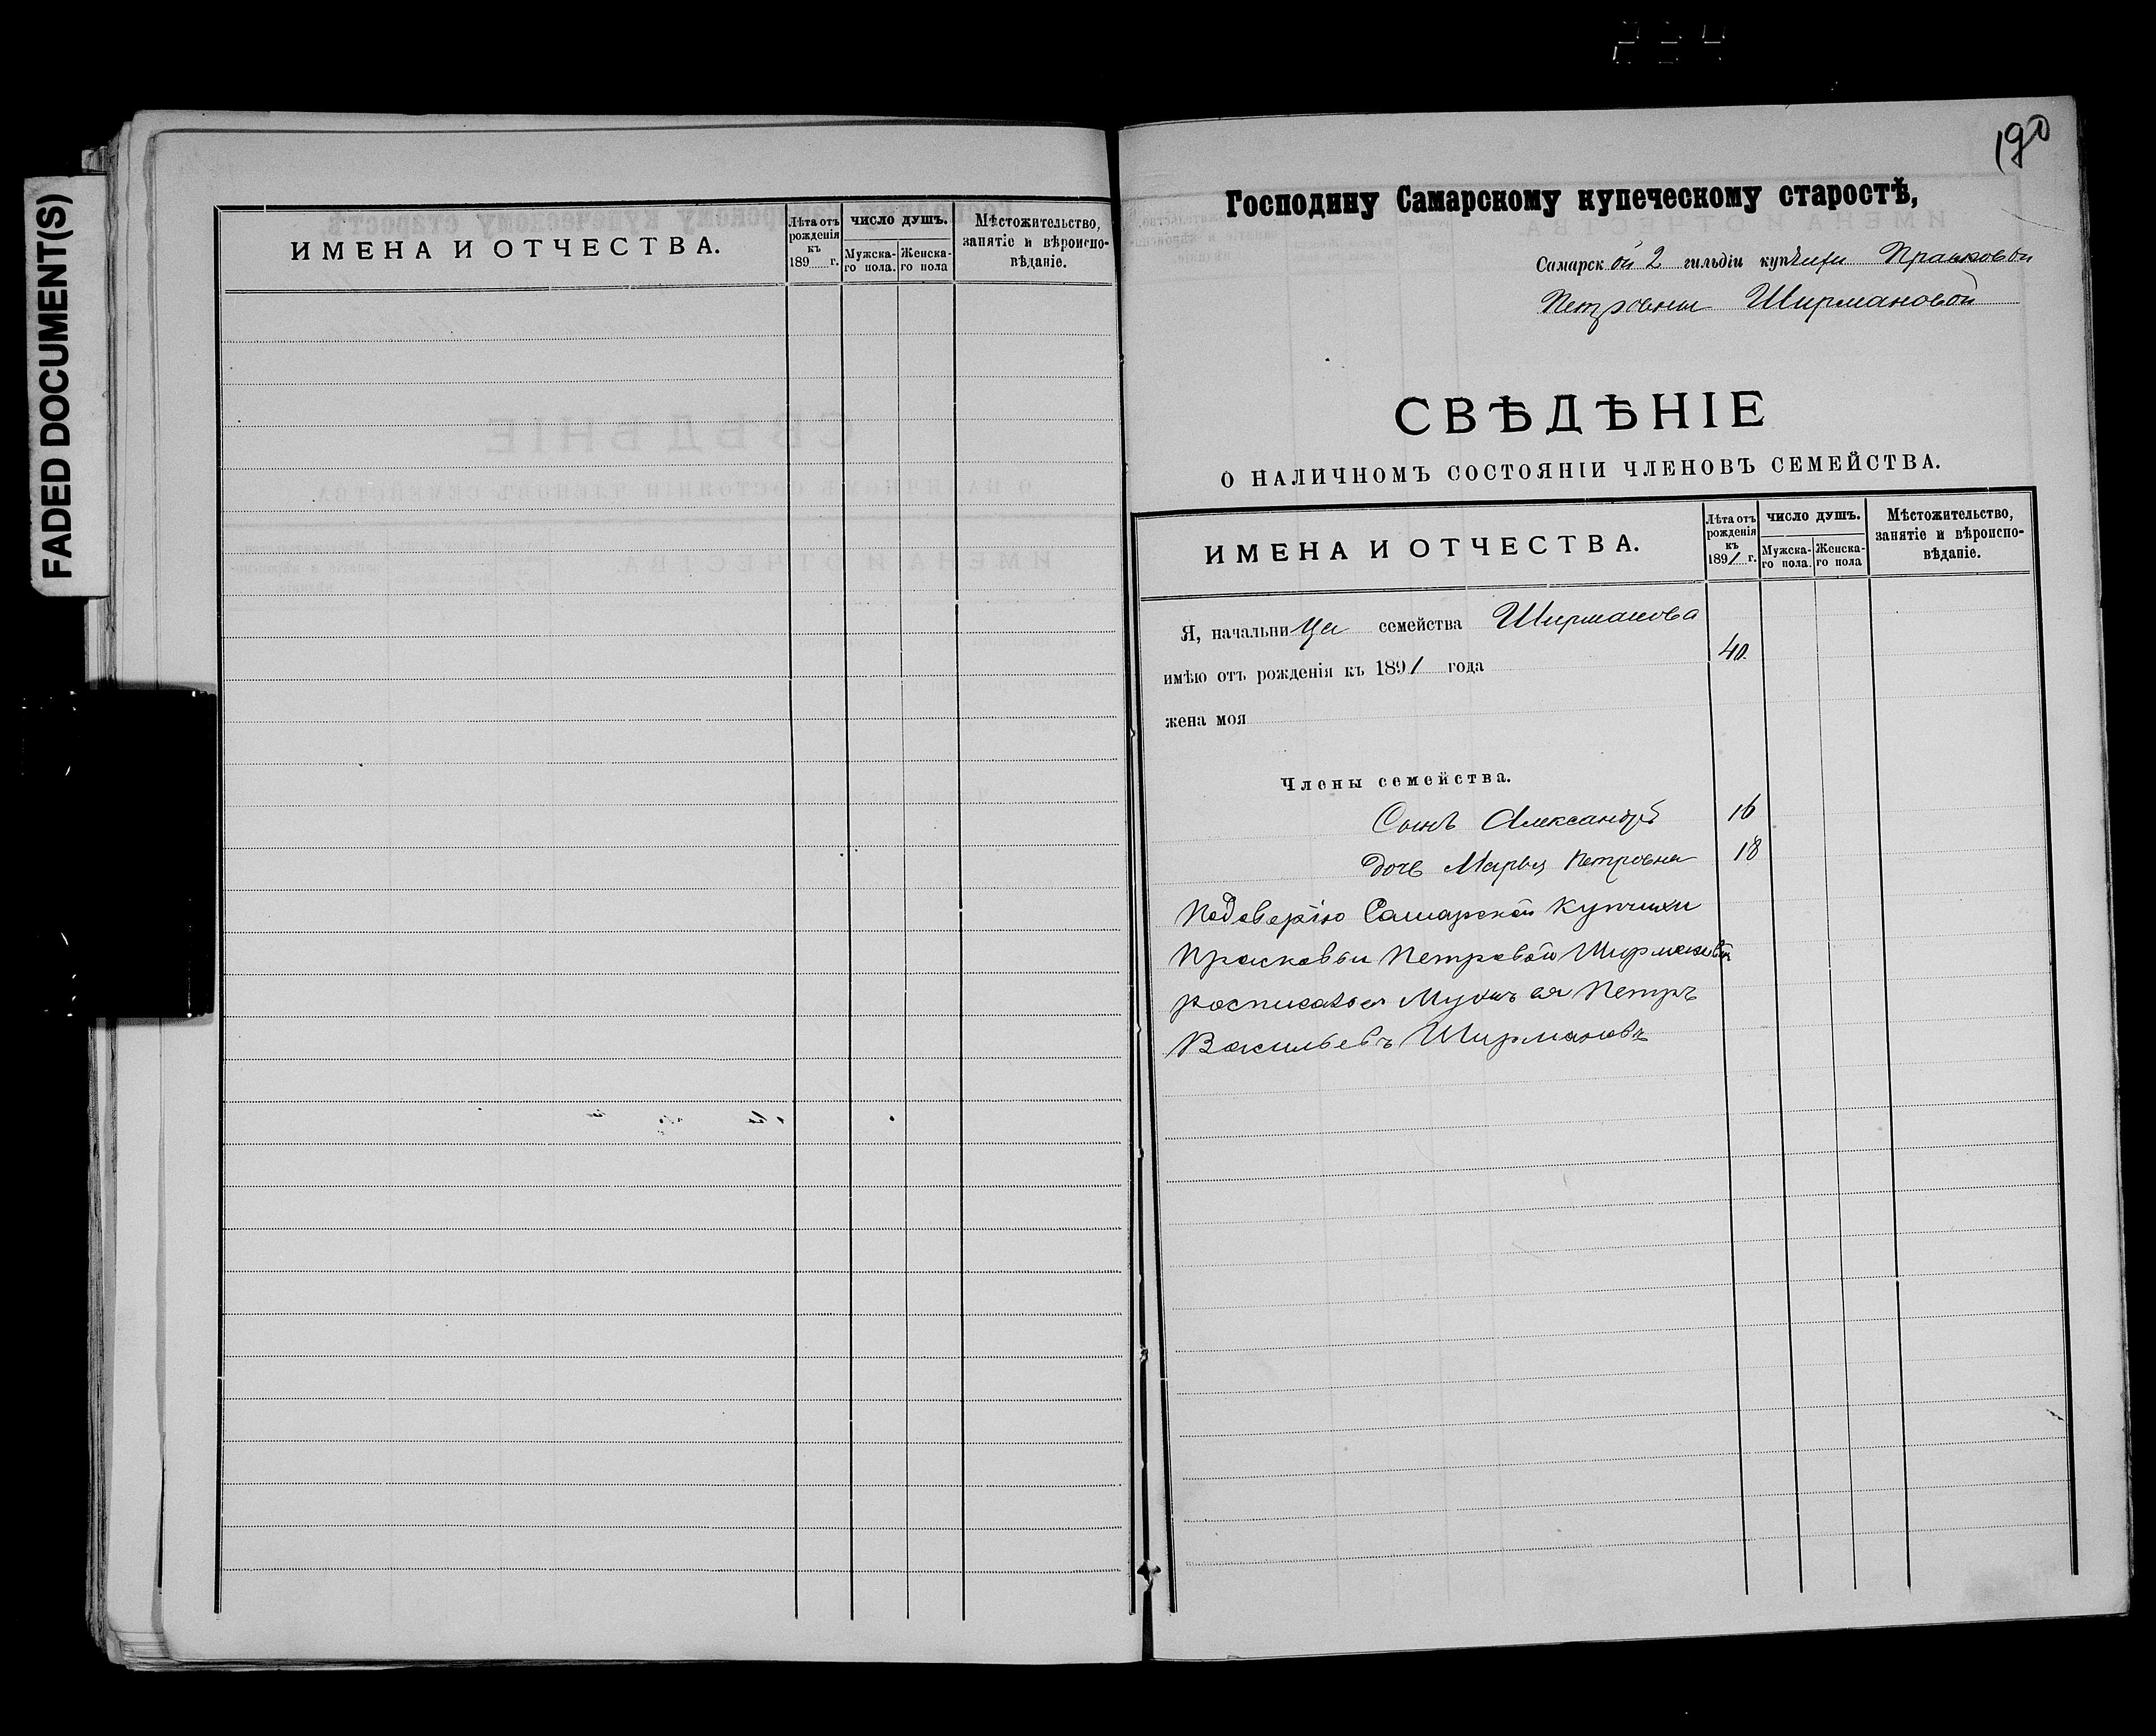 FADED DOCUMENT(S)
ИМЕНА И ОТЧЕСТВА.
Лѣта отъ рожденія къ 189 г.
ЧИСЛО ДУШЪ.
Мужска-го пола.
Женска-го пола
Мѣстожительство, занятіе и вѣроиспо-вѣданіе.
190
Господину Самарскому купеческому старостѣ,
Самарской 2 гильдіи купчихи Прасковьи
Петровны Ширмановой
СВѢДѢНІЕ
О НАЛИЧНОМЪ СОСТОЯНІИ ЧЛЕНОВЪ СЕМЕЙСТВА.
ИМЕНА И ОТЧЕСТВА.
Лѣта отъ рожденія къ 1891 г.
ЧИСЛО ДУШЪ.
Мужска-го пола.
Женска-го пола
Мѣстожительство, занятіе и вѣроиспо-вѣданіе.
Я, начальница семейства Ширманова
имѣю отъ рожденія къ 1891 года 40
жена моя
Члены семейства.
Сынъ Александръ 16
дочь Марья Петровна 18
Подоверію Самарской купчихи
Прасковьи Петровой Ширмановой
росписался Мужъ ея Петръ
Васильевъ Ширмановъ